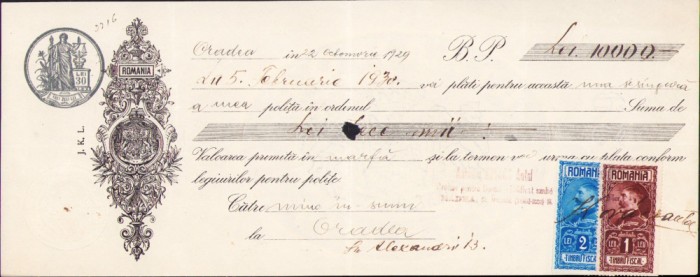 3216
Oradea in 22 Octomvrie 1929 B. P. Lei 10000.-
LEI 30
ROMANIA
La 5. Februarie 1930. voi plăti pentru această una singura
a mea poliță în ordinul Suma de
J. K. L.
Lei zece mii!
Valoarea premită în marfă și la termen voi urma cu plata conform
legiuirilor pentru polițe.
Către mine în-sumi
la Oradea
Str. Alexandri 3.
ROMANIA
LEI 2 LEI
TIMBRU FISCAL
ROMANIA
LEI 1 LEI
TIMBRU FISCAL